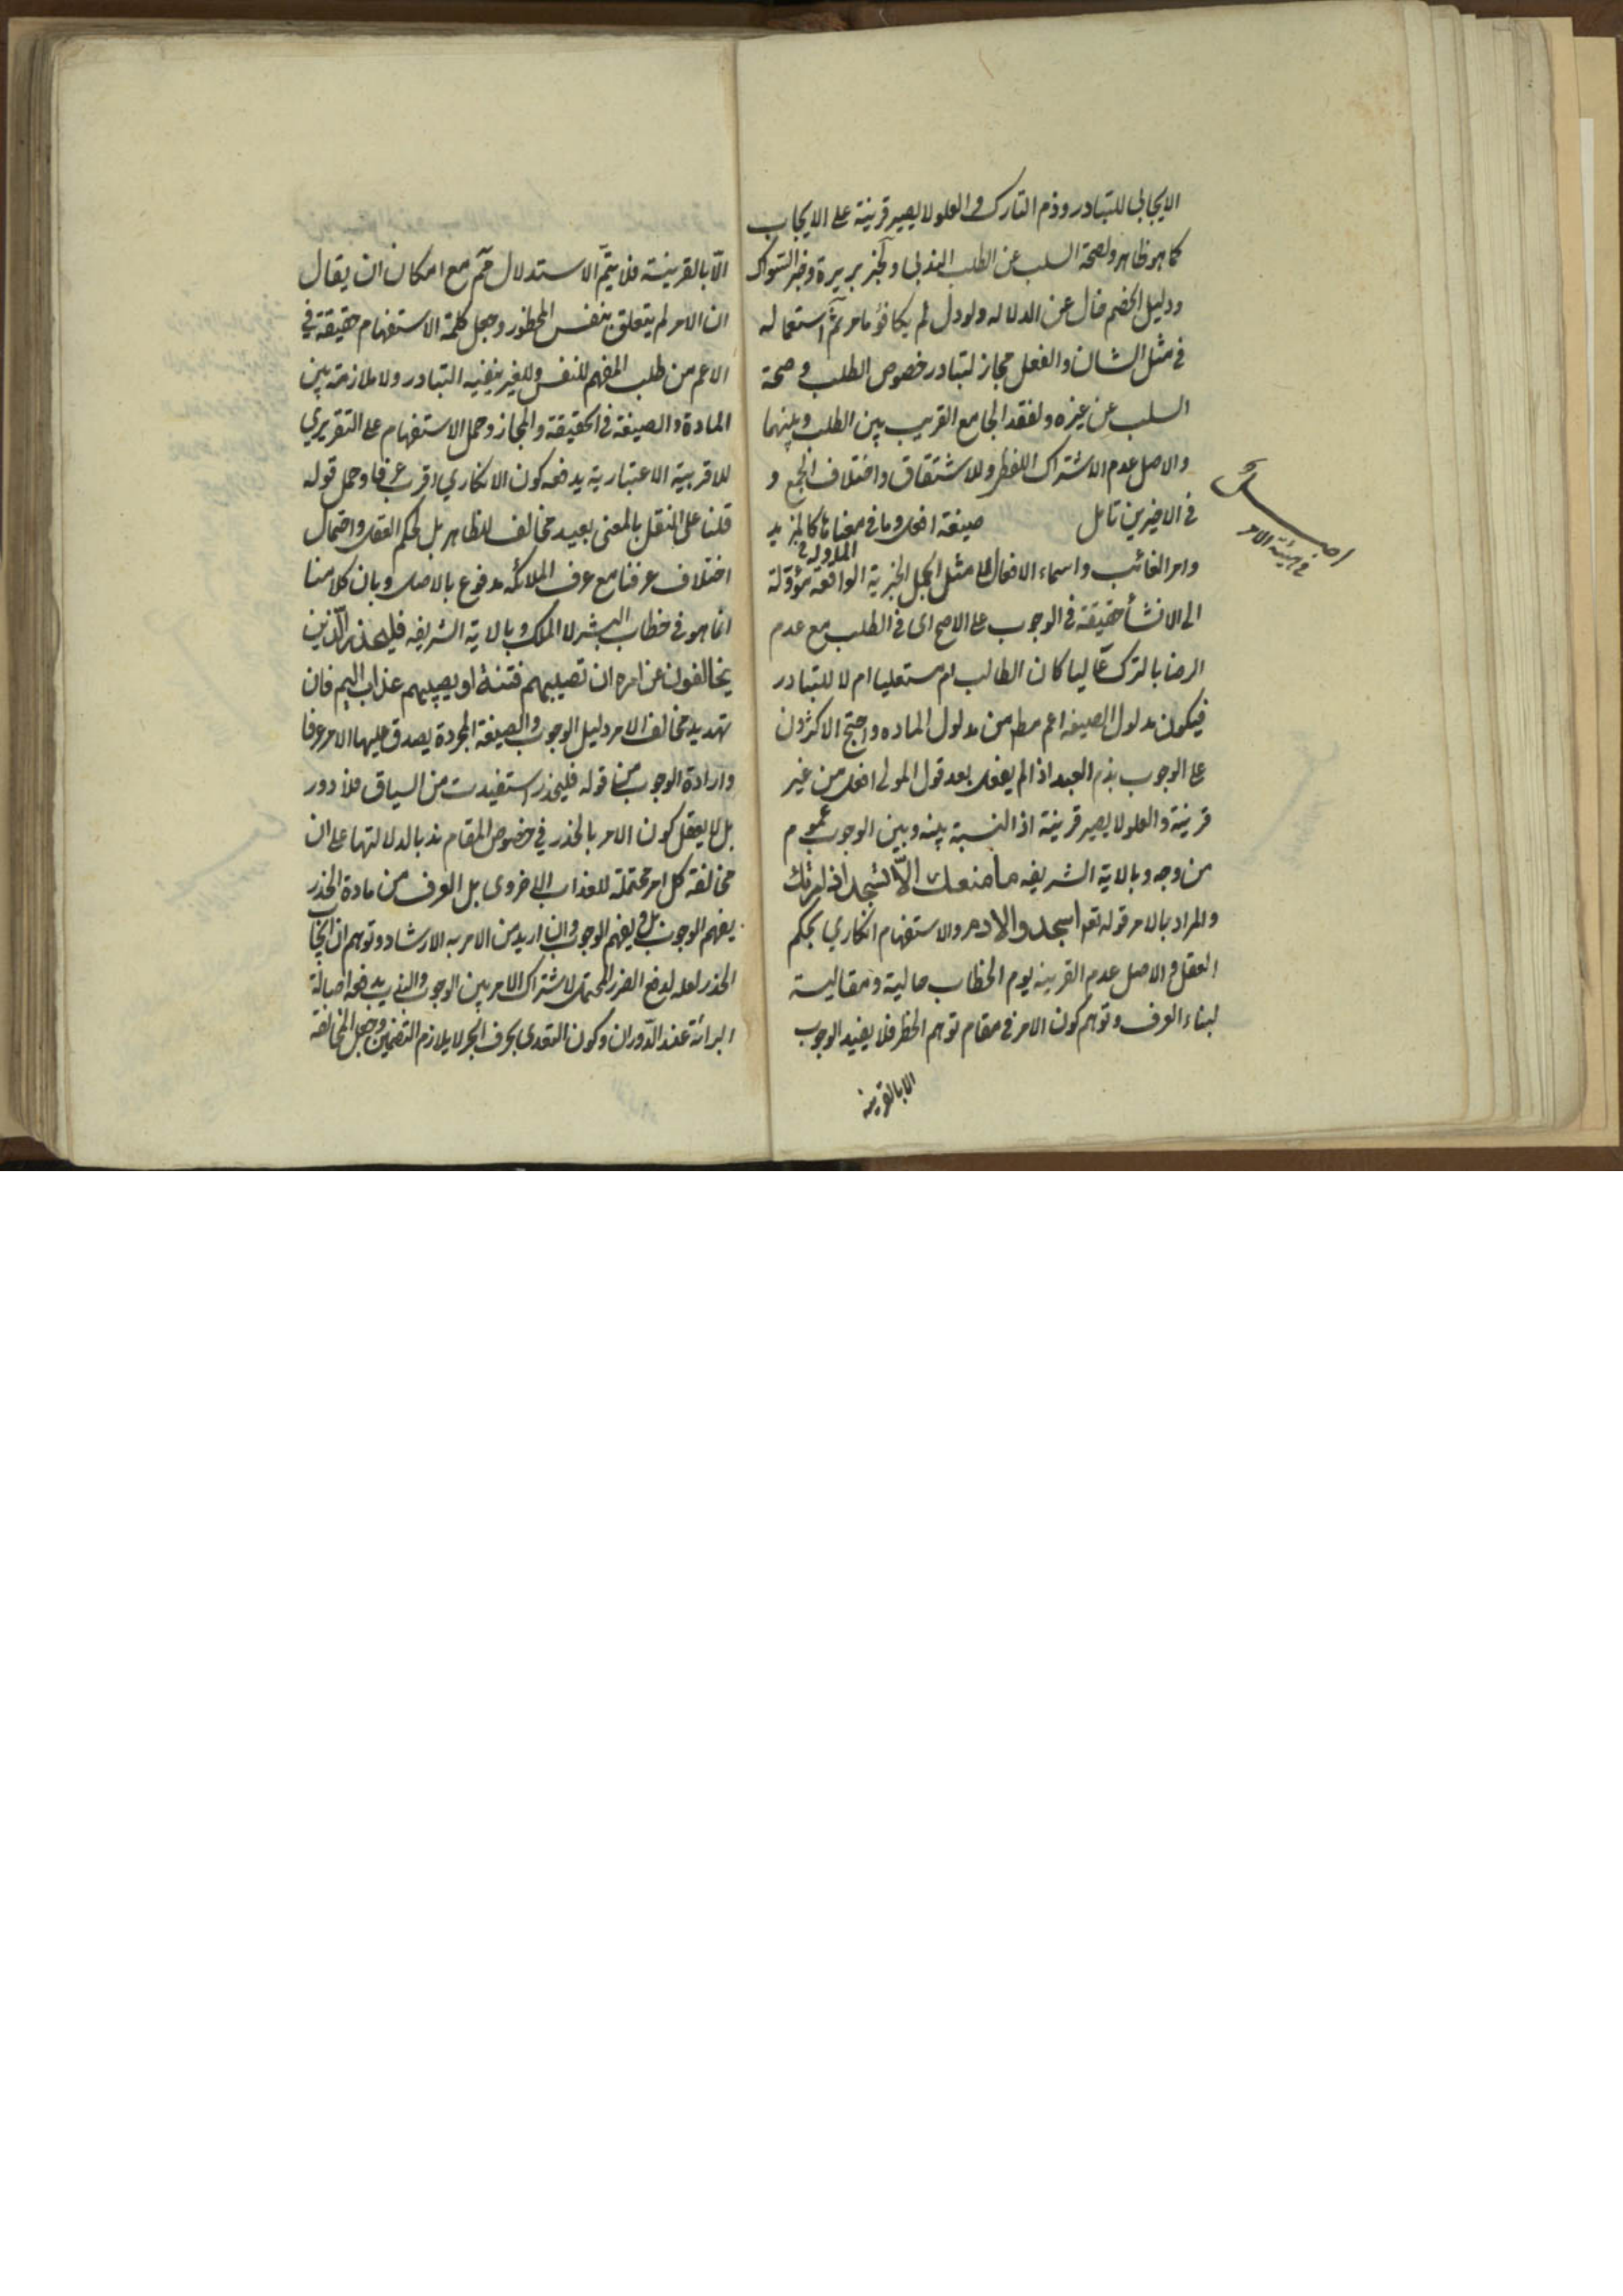 الايجابي للتبادر وذم التارك والعلو لا يصير قرينة على الايجاب
كما هو ظاهر ولصحة السلب عن الطلب الندبي ولخبر بريرة وخبر السواك
ودليل الخصم خال عن الدلالة ولو دل لم يكافؤ ما مر ثم استعماله
في مثل الشان والفعل مجاز لتبادر خصوص الطلب وصحة
السلب عن غيره ولفقد الجامع القريب بين الطلب وبينهما
والاصل عدم الاشتراك اللفظي وللاشتقاق واختلاف الجمع و
في الاخيرين تامل صيغة افعل وما في معناها كالمزيد
اصل
في هيئة الامر
وامر الغائب واسماء الافعال مثل الجمل الخبرية الواقعة مؤولة
الى الانشأ حقيقة في الوجوب على الاصح اى في الطلب مع عدم
الرضا بالترك عاليا كان الطالب ام مستعليا ام لا للتبادر
فيكون مدلول الصيغه اعم مط من مدلول الماده واحتج الاكثرون
على الوجوب بذم العبد اذا لم يفعل بعد قول المولى افعل من غير
قرينة والعلو لا يصير قرينة اذ النسبة بينه وبين الوجوب عموم
من وجه وبالاية الشريفه ما منعك الّا تسجد اذ امرتك
والمراد بالامر قوله تعه اسجدوا لادم والاستفهام انكاري بحكم
العقل والاصل عدم القرينه يوم الخطاب حالية ومقالية
لبناء العرف وتوهم كون الامر في مقام توهم الحظر فلا يفيد الوجوب
الا بالقرينه
الّا بالقرينة فلا يتمّ الاستدلال مع امكان ان يقال
ان الامر لم يتعلق بنفس المحظور وجعل كلمة الاستفهام حقيقة في
الاعم من طلب الفهم للنفس وللغير ينفيه التبادر ولا ملازمة بين
المادة والصيغة في الحقيقة والمجاز وحمل الاستفهام على التقريري
للاقربية الاعتبارية يدفعه كون الانكاري اقرب عرفا وحمل قوله
قلنا على النقل بالمعنى بعيد مخالف للظاهر بل لحكم العقل واحتمال
اختلاف عرفنا مع عرف الملائكه مدفوع بالاصل وبان كلامنا
انما هو في خطاب البشر لا الملك وبالاية الشريفه فليحذر الّذين
يخالفون عن امره ان تصيبهم فتنة او يصيبهم عذاب اليم فان
تهديد مخالف الامر دليل الوجوب والصيغة المجردة يصدق عليها الامر عرفا
وارادة الوجوب من قوله فليحذر استفيدت من السياق فلا دور
بل لا يعقل كون الامر بالحذر في خصوص المقام ندبا لدلالتها على ان
مخالفة كل امر محتملة للعذاب الاخروى بل العرف من مادة الحذر
يفهم الوجوب بل يفهم الوجوب وان اريد من الامر به الارشاد وتوهم ان ايجاب
الحذر لعله لدفع الضرر المحتمل لاشتراك الامر بين الوجوب والندب يدفعه اصالة
البرائة عند الدّوران وكون التعدى بحرف الجر لا يلازم التضمين وجعل المخالفة